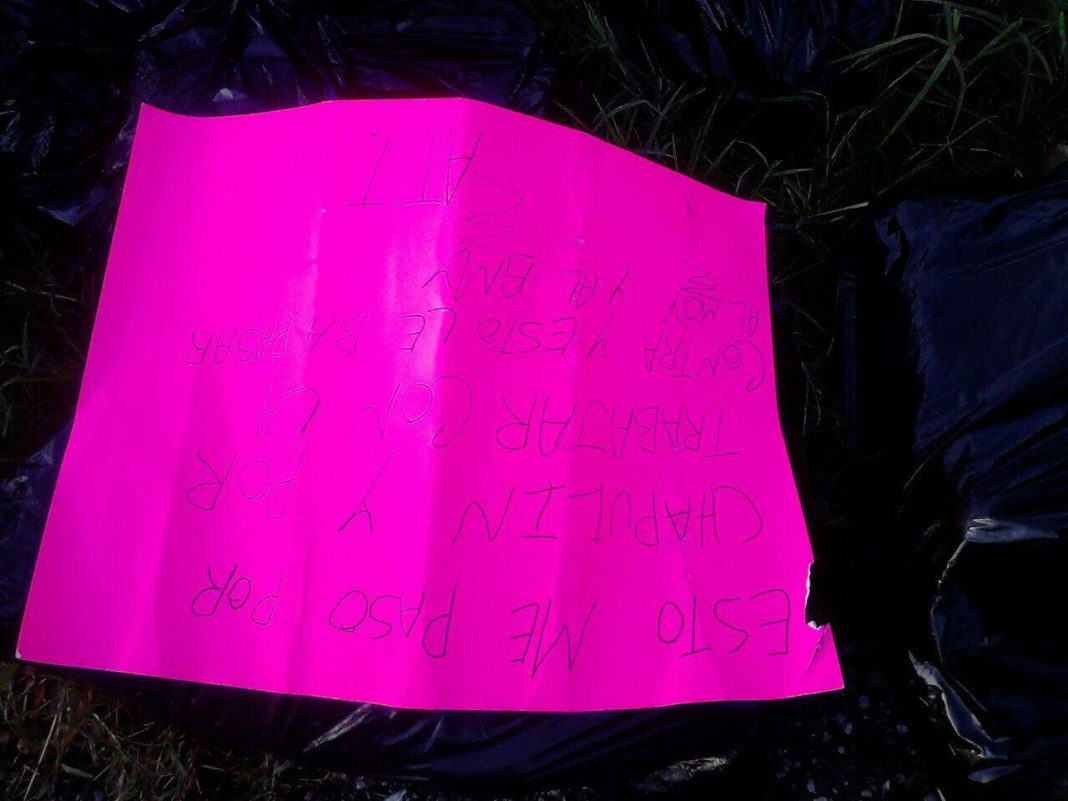 ESTO ME PASO POR
CHAPULIN Y POR
TRABAJAR CON LA
CONTRA Y ESTO LE BA PASAR
AL MOY Y AL
ATI